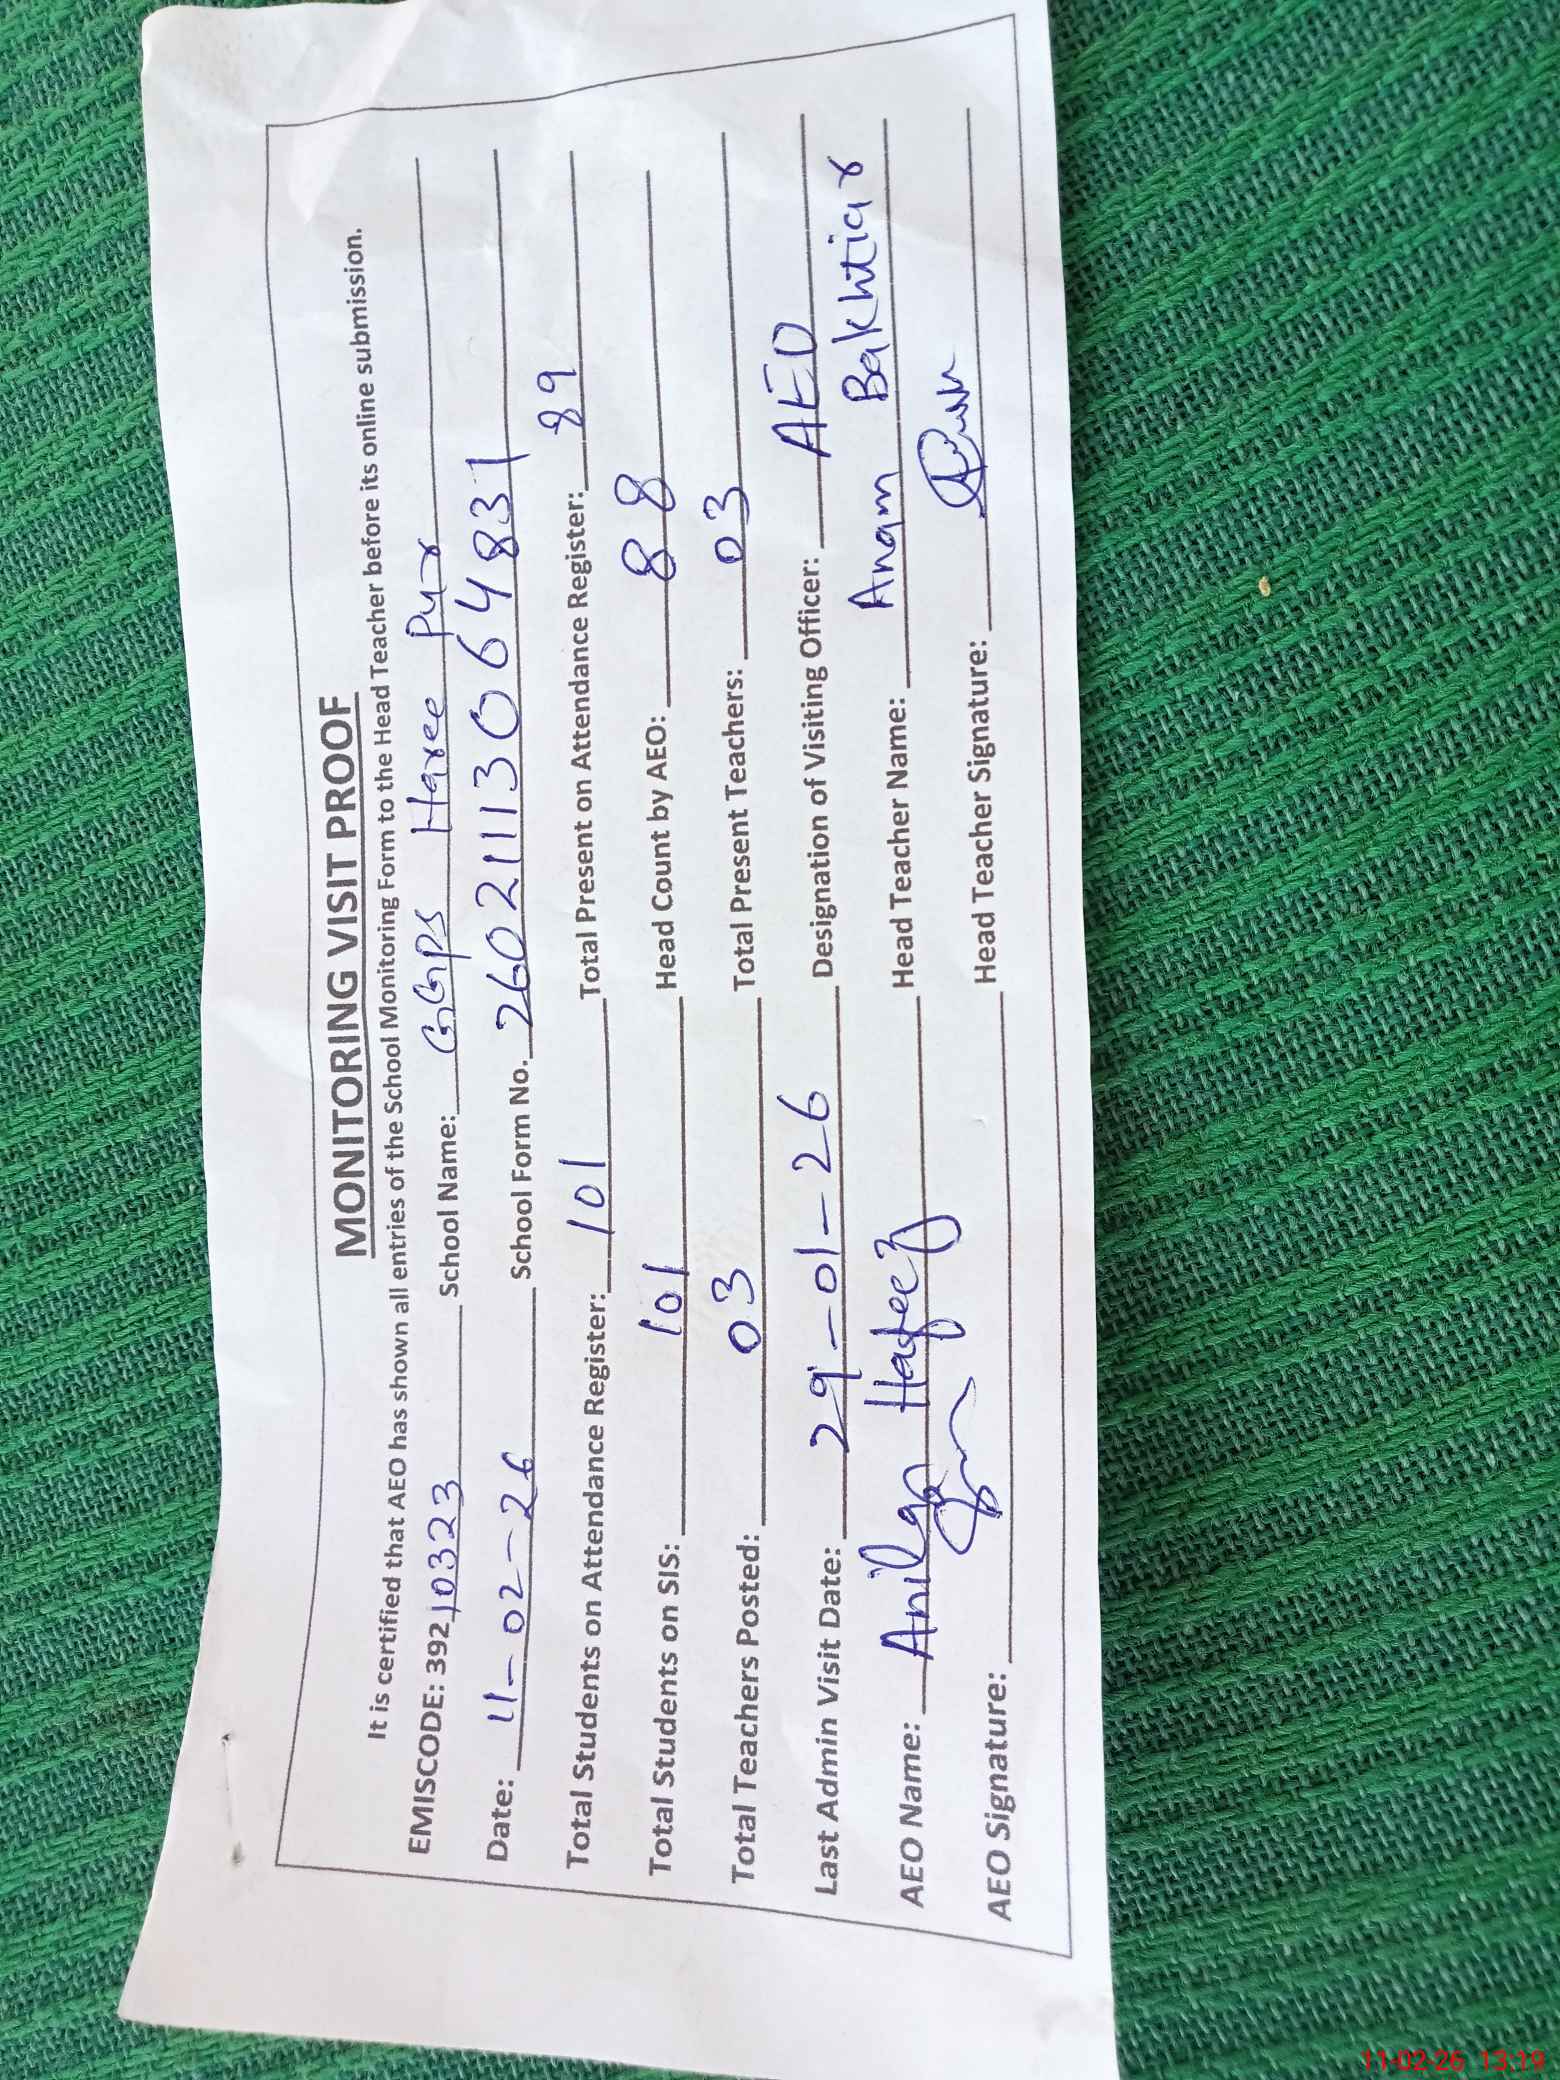 MONITORING VISIT PROOF
It is certified that AEO has shown all entries of the School Monitoring Form to the Head Teacher before its online submission.
EMISCODE: 39210323 School Name: GGPS Haree Pur
Date: 11-02-26 School Form No. 26021113064831
Total Students on Attendance Register: 101 Total Present on Attendance Register: 89
Total Students on SIS: 101 Head Count by AEO: 88
Total Teachers Posted: 03 Total Present Teachers: 03
Last Admin Visit Date: 29-01-26 Designation of Visiting Officer: AEO
AEO Name: Anila Hafeez Head Teacher Name: Anam Bakhtiar
AEO Signature: Head Teacher Signature:
11-02-26 13:19